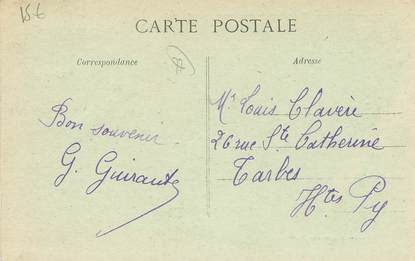 156
CARTE POSTALE
Correspondance
Adresse
Bon souvenir
G. Guiraute
Mr Louis Claverie
26 rue Ste Catherine
Tarbes
Htes Py